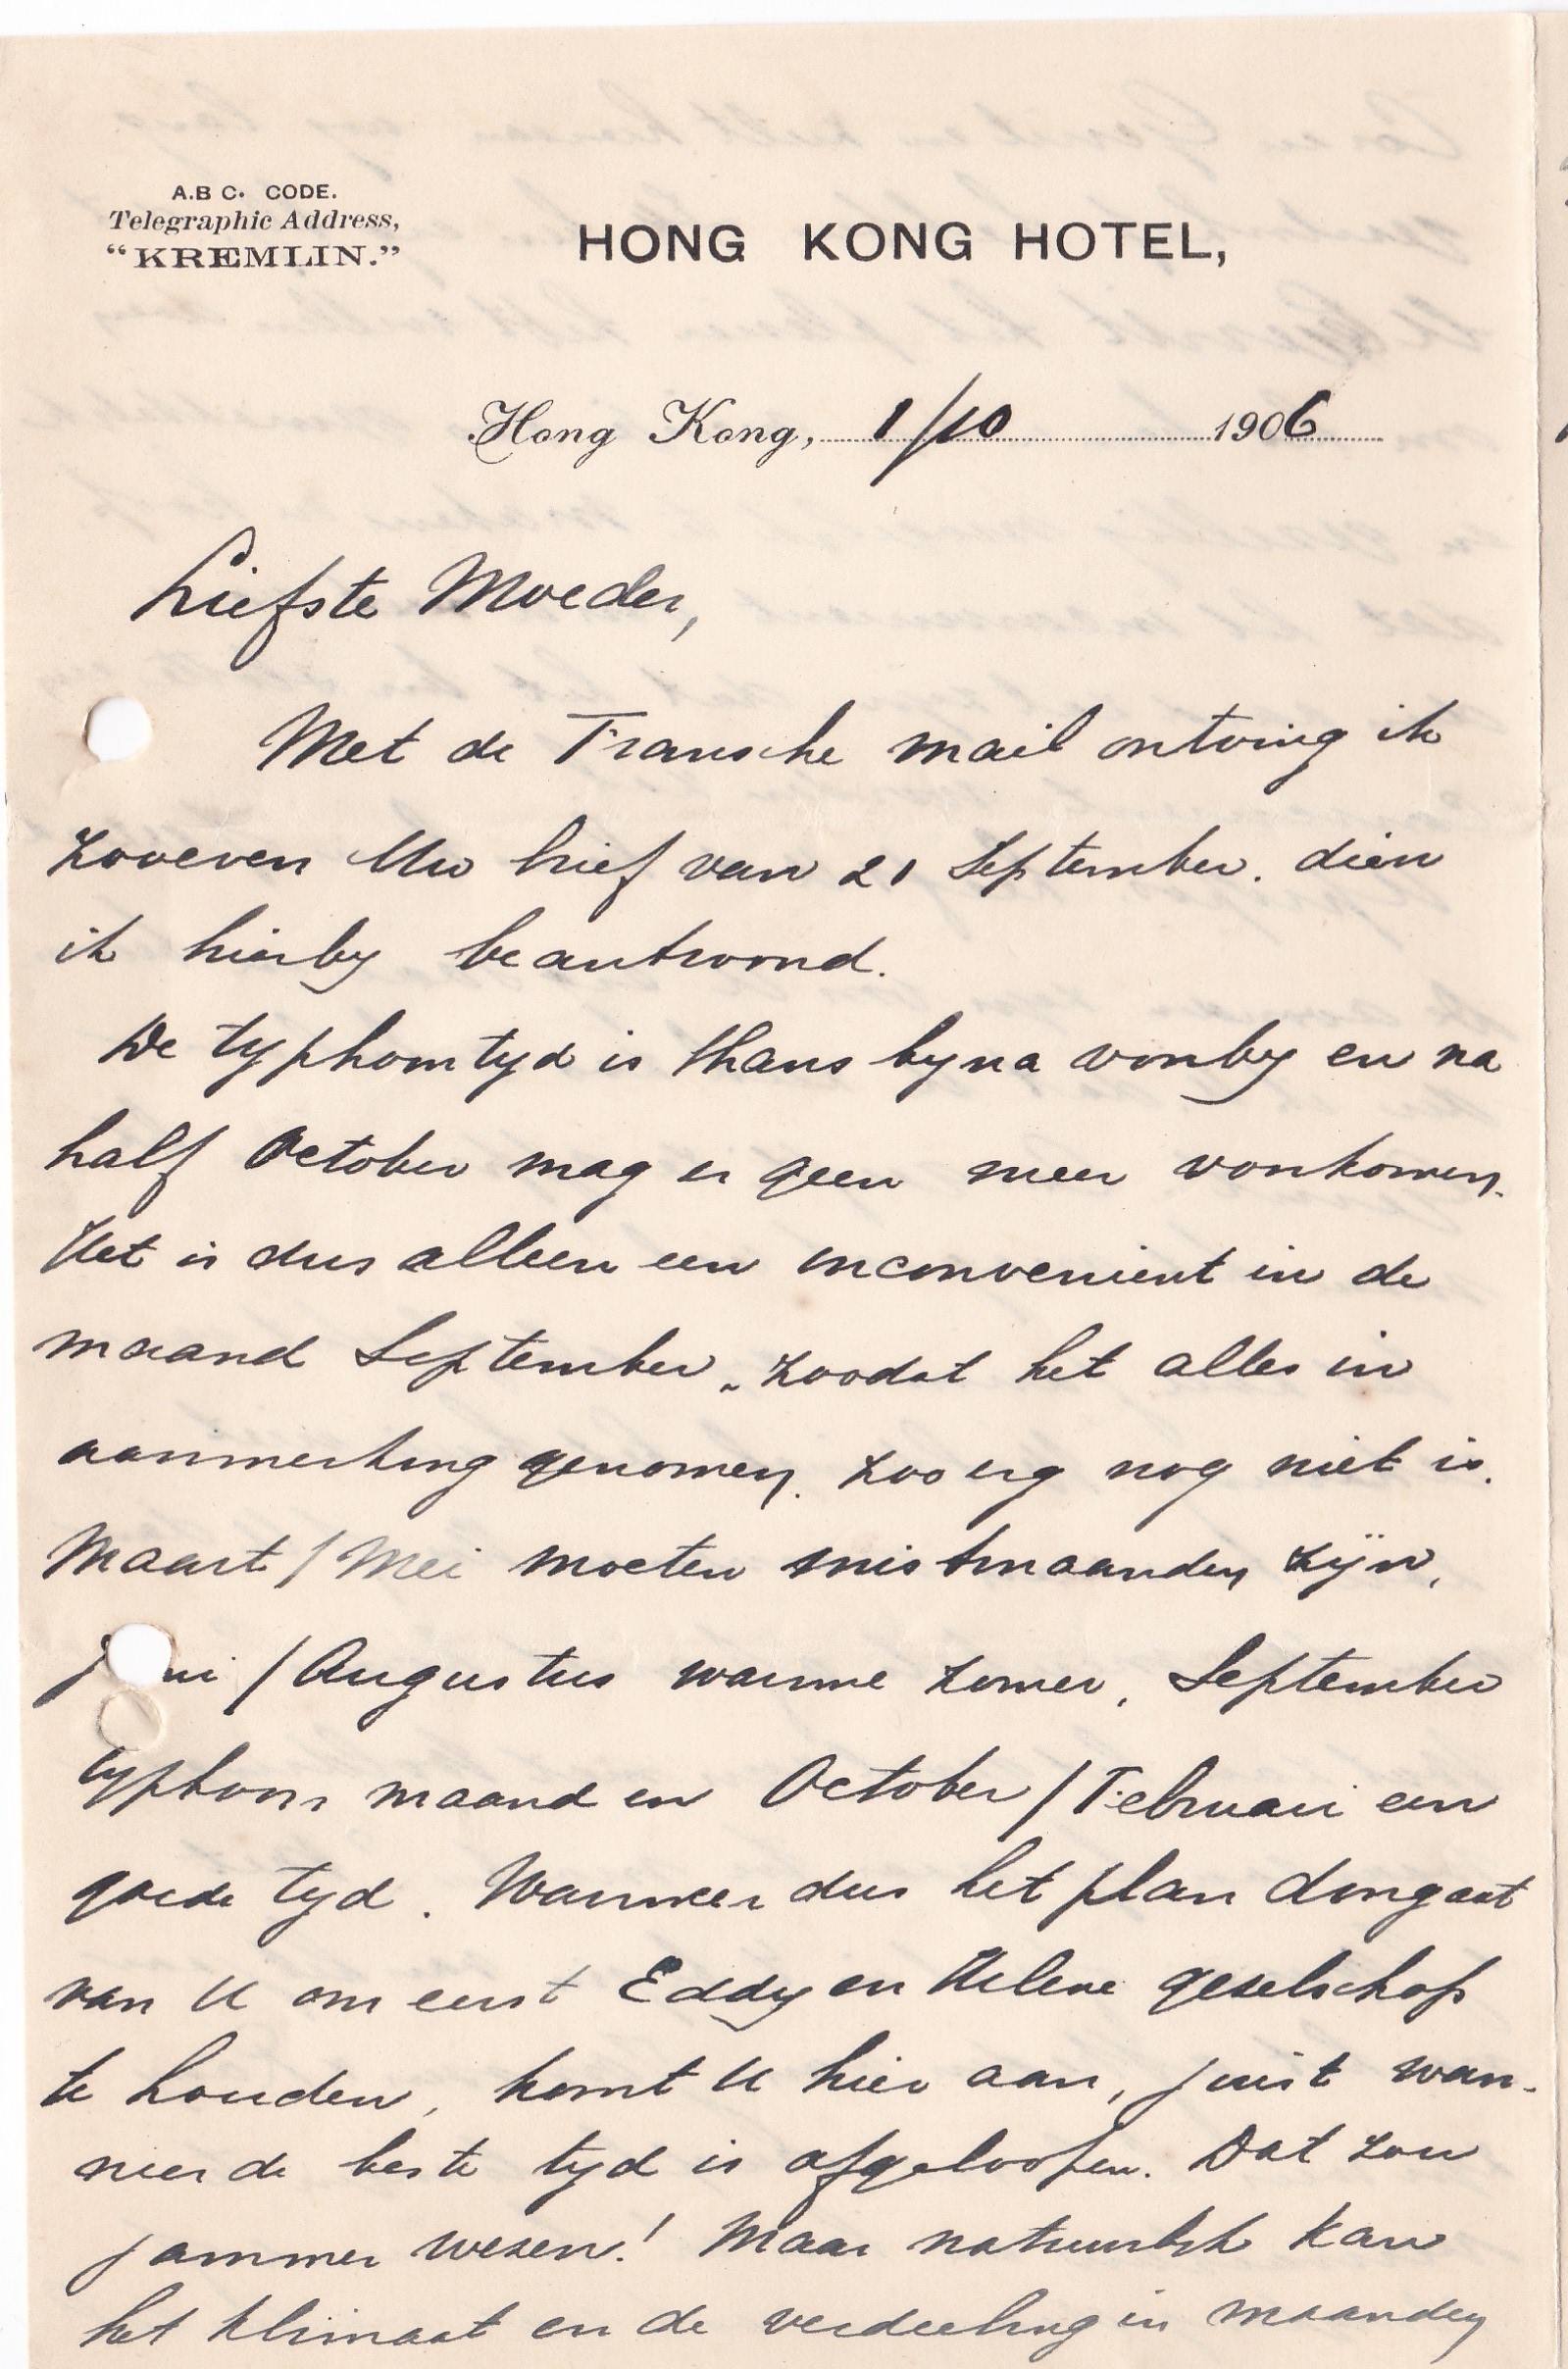 A.B C. CODE.
Telegraphic Address,
"KREMLIN."
HONG KONG HOTEL,
Hong Kong, 1/10 1906
Liefste Moeder,
Met de Fransche mail ontving ik
zooeven Uw brief van 21 September. dien
ik hierby beantwoord.
De typhoontyd is thans byna voorby en na
half October mag er geen meer voorkomen.
Het is dus alleen een inconvenient in de
maand September, zoodat het alles in
aanmerking genomen, zoo erg nog niet is.
Maart / Mei moeten mistmaanden zijn,
Juni / Augustus warme zomer, September
typhoon maand en October / Februari een
goede tyd. Wanneer dus het plan doorgaat
van U om eerst Eddy en Helene geselschap
te houden, komt U hier aan, juist wan-
neer de beste tyd is afgeloopen. Dat zou
jammer wezen! Maar natuurlyk kan
het klimaat en de verdeeling in maanden